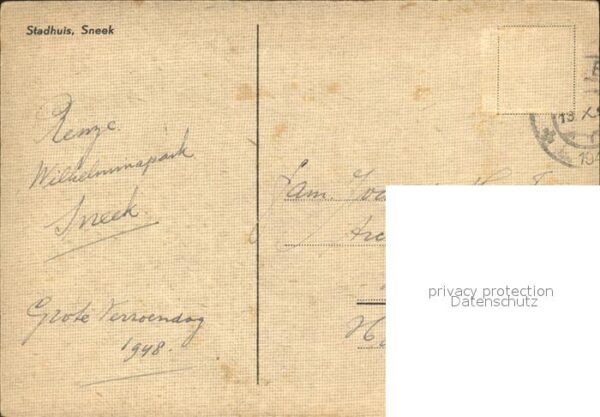 Stadhuis, Sneek
Renze
Wilhelminapark
Sneek
Grote Verzoendag
1948.
Fam.
13.X.
194
privacy protection
Datenschutz